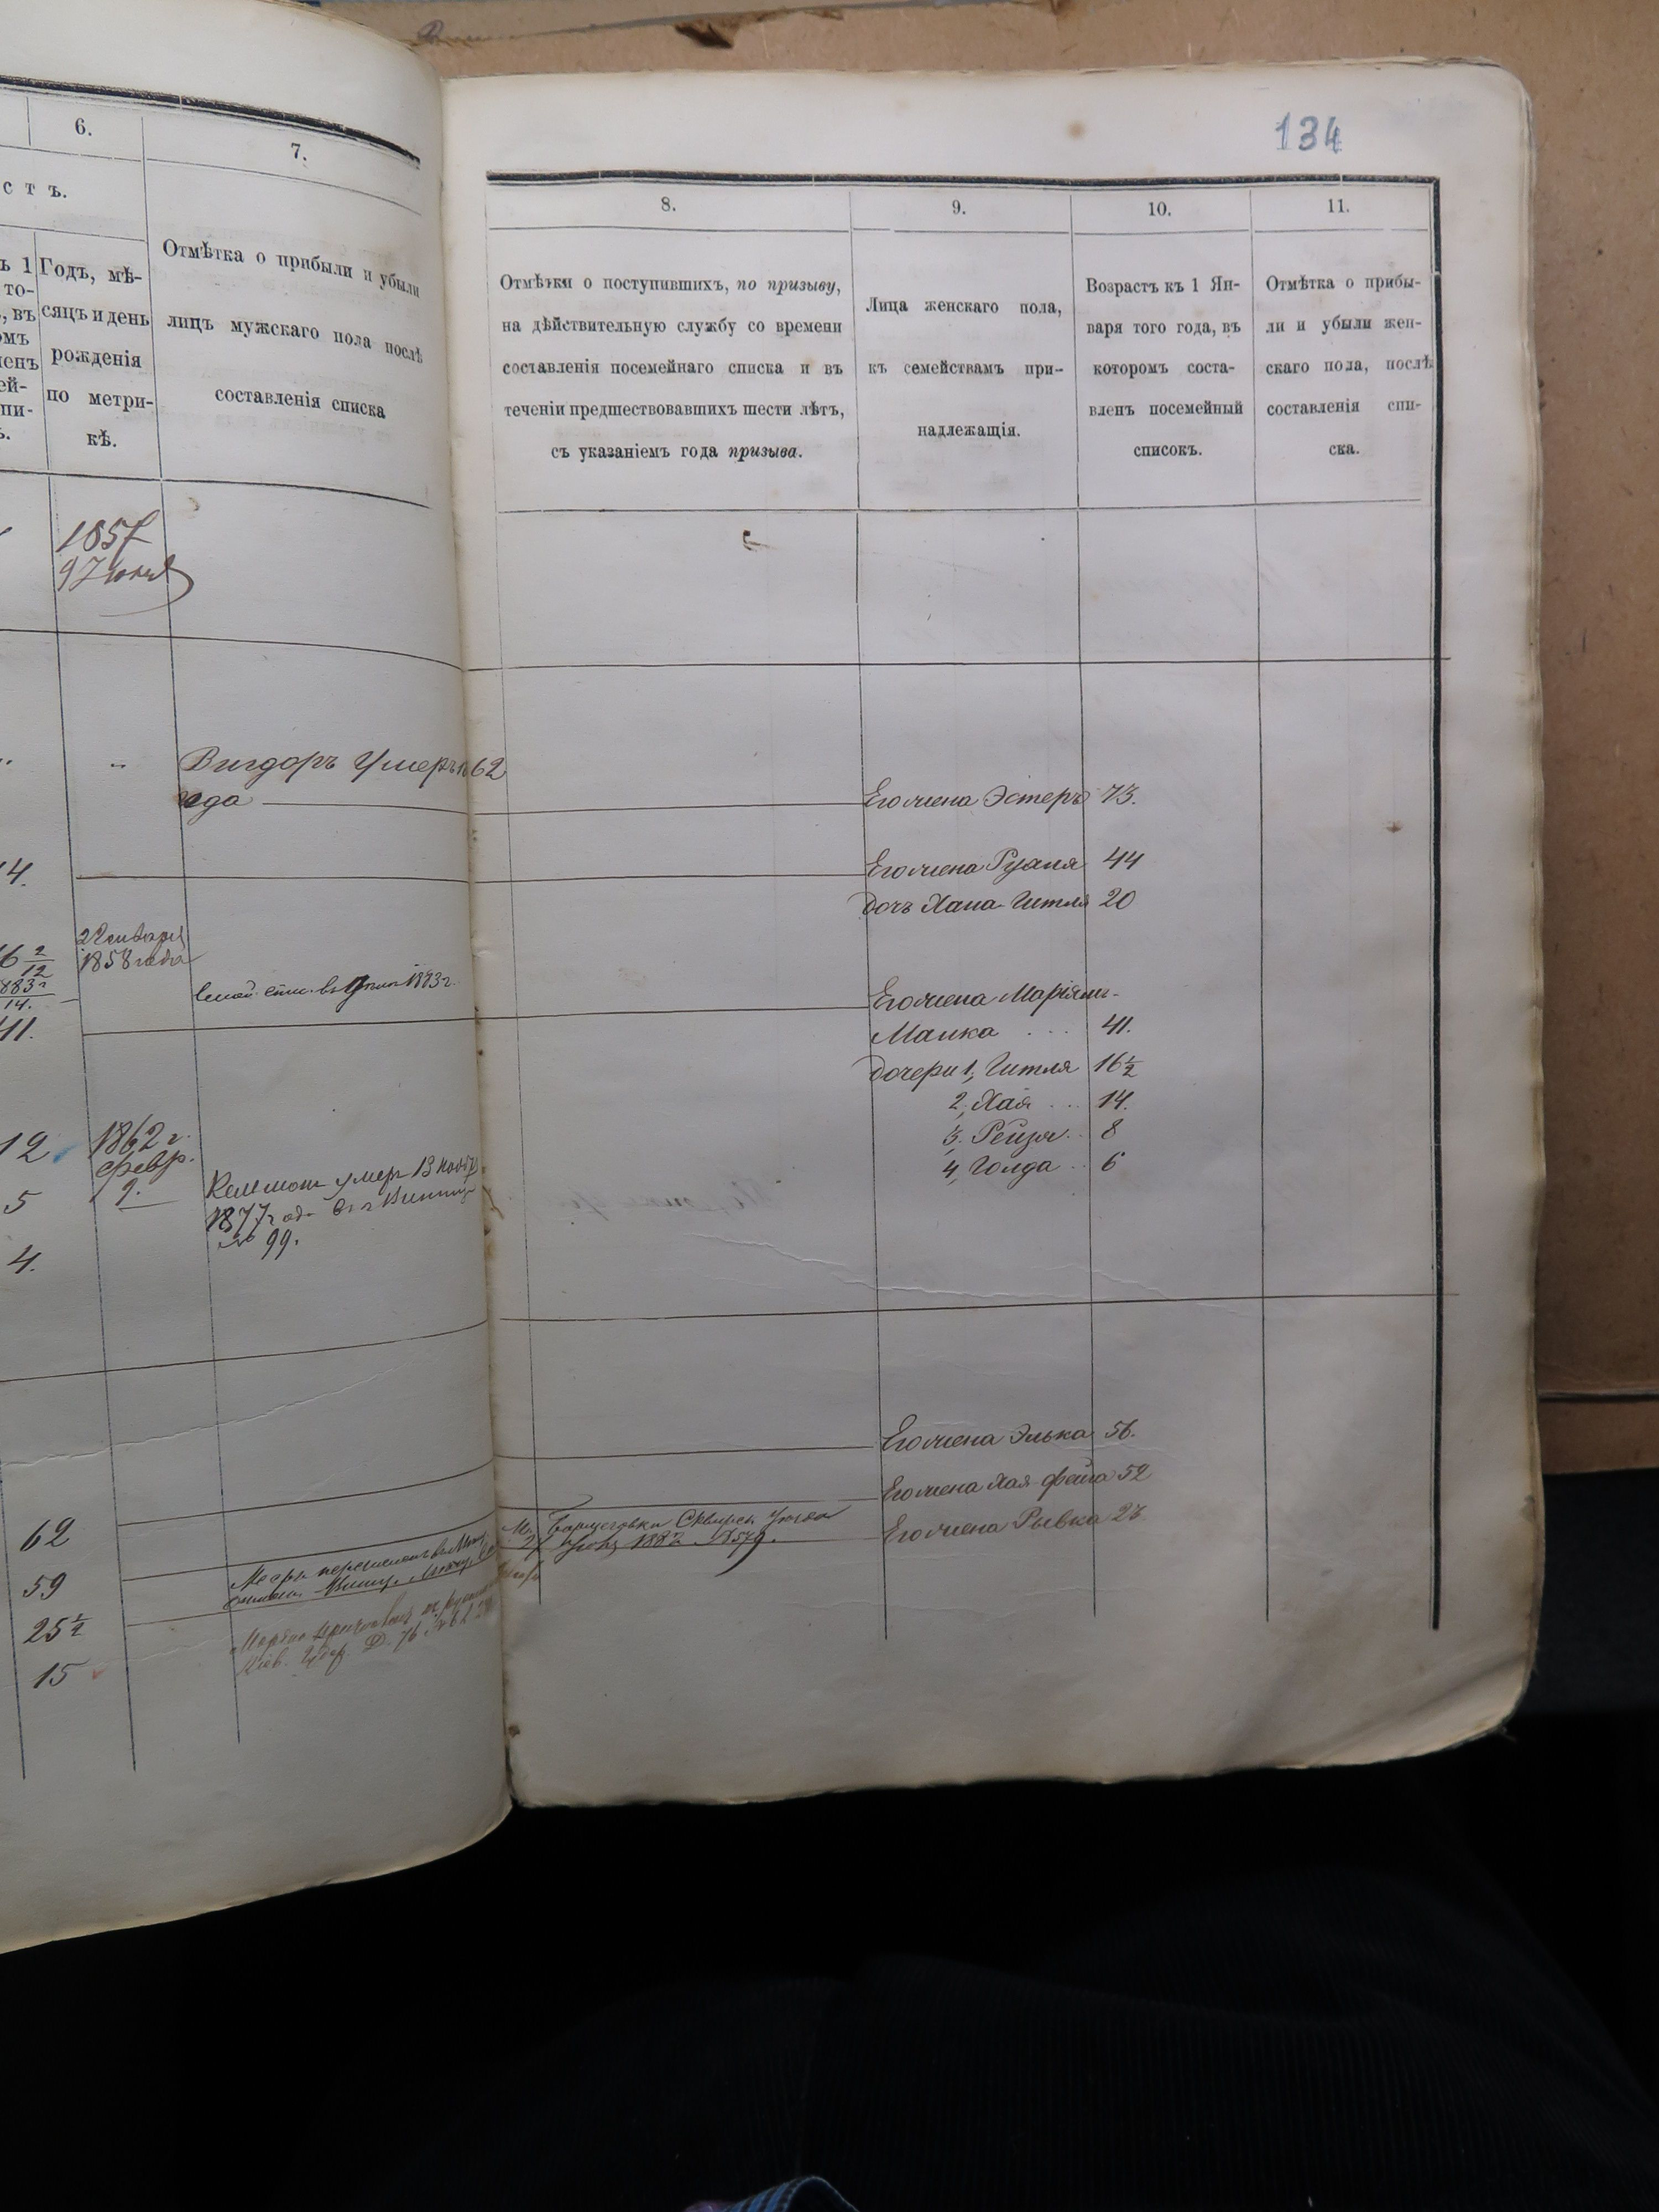 6.
7.
с т ъ.
ъ 1
то-
, въ
омъ
ленъ
ей-
пи-
ъ.
Годъ, мѣ-
сяцъ и день
рожденія
по метри-
кѣ.
Отмѣтка о прибыли и убыли
лицъ мужскаго пола послѣ
составленія списка
1857
9 Іюня
"
"
Вигдоръ Умеръ в 62
года
14.
16 2/12
883 г
14.
2 Генваря
1858 года
1883 г.
41.
12
1862 г.
февр.
9.
5
умер 13 нояб
1877 год въ г Винниц
№ 99.
4.
62
59
25 1/2
15
Кіев. Губер. Д. 76 №
134
8.
9.
10.
11.
Отмѣтки о поступившихъ, по призыву,
на дѣйствительную службу со времени
составленія посемейнаго списка и въ
теченіи предшествовавшихъ шести лѣтъ,
съ указаніемъ года призыва.
Лица женскаго пола,
къ семействамъ при-
надлежащія.
Возрастъ къ 1 Ян-
варя того года, въ
которомъ соста-
вленъ посемейный
списокъ.
Отмѣтка о прибы-
ли и убыли жен-
скаго пола, послѣ
составленія спи-
ска.
Его жена Эстеръ 73.
Его жена Рузия 44
дочь Хана-Гитля 20
Его жена Маріямъ-
Малка . . . 41.
дочери 1, Гитля 16 1/2
2, Хая . . . 14.
3. Рейзя . . 8
4, Голда . . 6
Его жена Элька 56.
Его жена Хая-фейга 52
М. Борщаговки Сквирск. Уезда
1882 №579.
Его жена Рывка 23